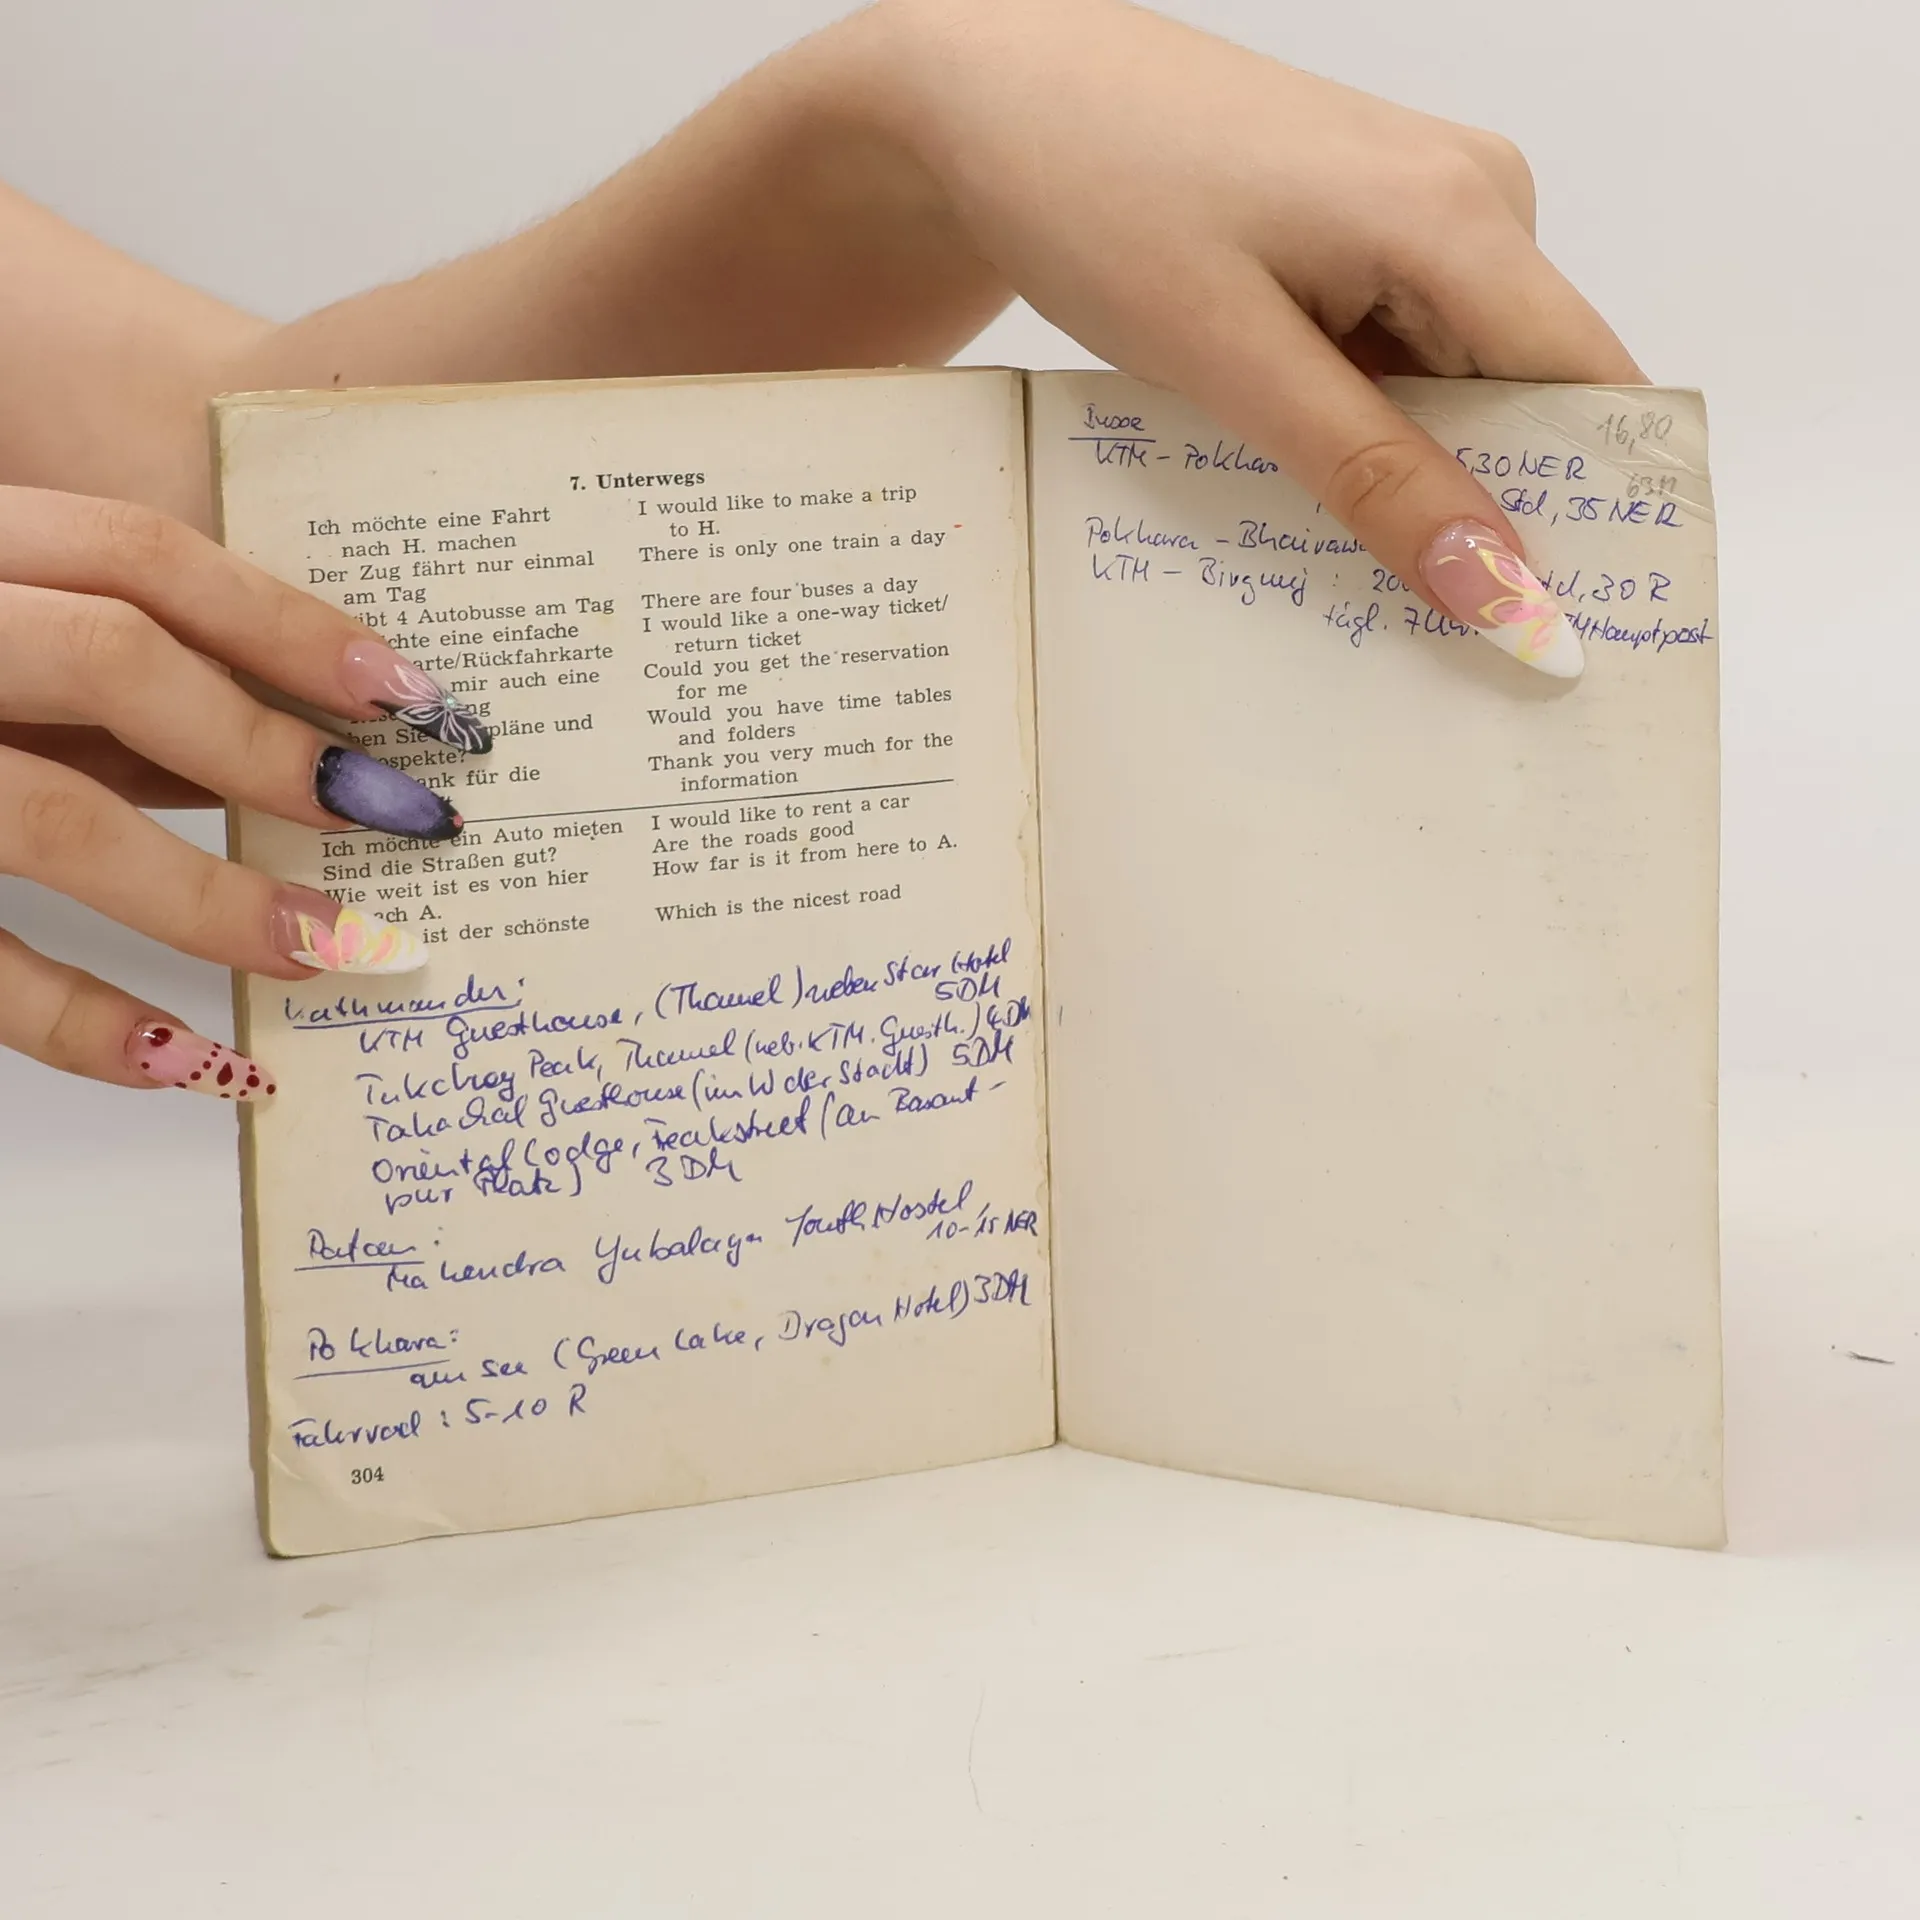 7. Unterwegs
Ich möchte eine Fahrt
nach H. machen
Der Zug fährt nur einmal
am Tag
ibt 4 Autobusse am Tag
chte eine einfache
arte/Rückfahrkarte
mir auch eine
ng
ben Sie pläne und
ospekte?
ank für die
I would like to make a trip
to H.
There is only one train a day
There are four buses a day
I would like a one-way ticket/
return ticket
Could you get the reservation
for me
Would you have time tables
and folders
Thank you very much for the
information
Ich möchte ein Auto mieten
Sind die Straßen gut?
Wie weit ist es von hier
ach A.
ist der schönste
I would like to rent a car
Are the roads good
How far is it from here to A.
Which is the nicest road
Kathmandu:
KTM Guesthouse, (Thamel) neben Star Hotel
5DM
Tukchey Peak, Thamel (neb. KTM. Guesth.) 4DM
Guesthouse (im W der Stadt) 5DM
Oriental Lodge, Freakstreet (am Basant-
pur Platz) 3DM
Patan:
Mahendra Yubalaya Youth Hostel,
10-15 NER
Pokhara:
am See (Green Lake, Dragon Hotel) 3DM
Fahrrad: 5-10 R
304
16,80
Busse
KTM - Pokhar 5,30 NER
63M
Std, 35 NER
Pokhara - Bhairawa
KTM - Birgunj : 20 td, 30 R
tägl. 7 Uhr TM Hauptpost